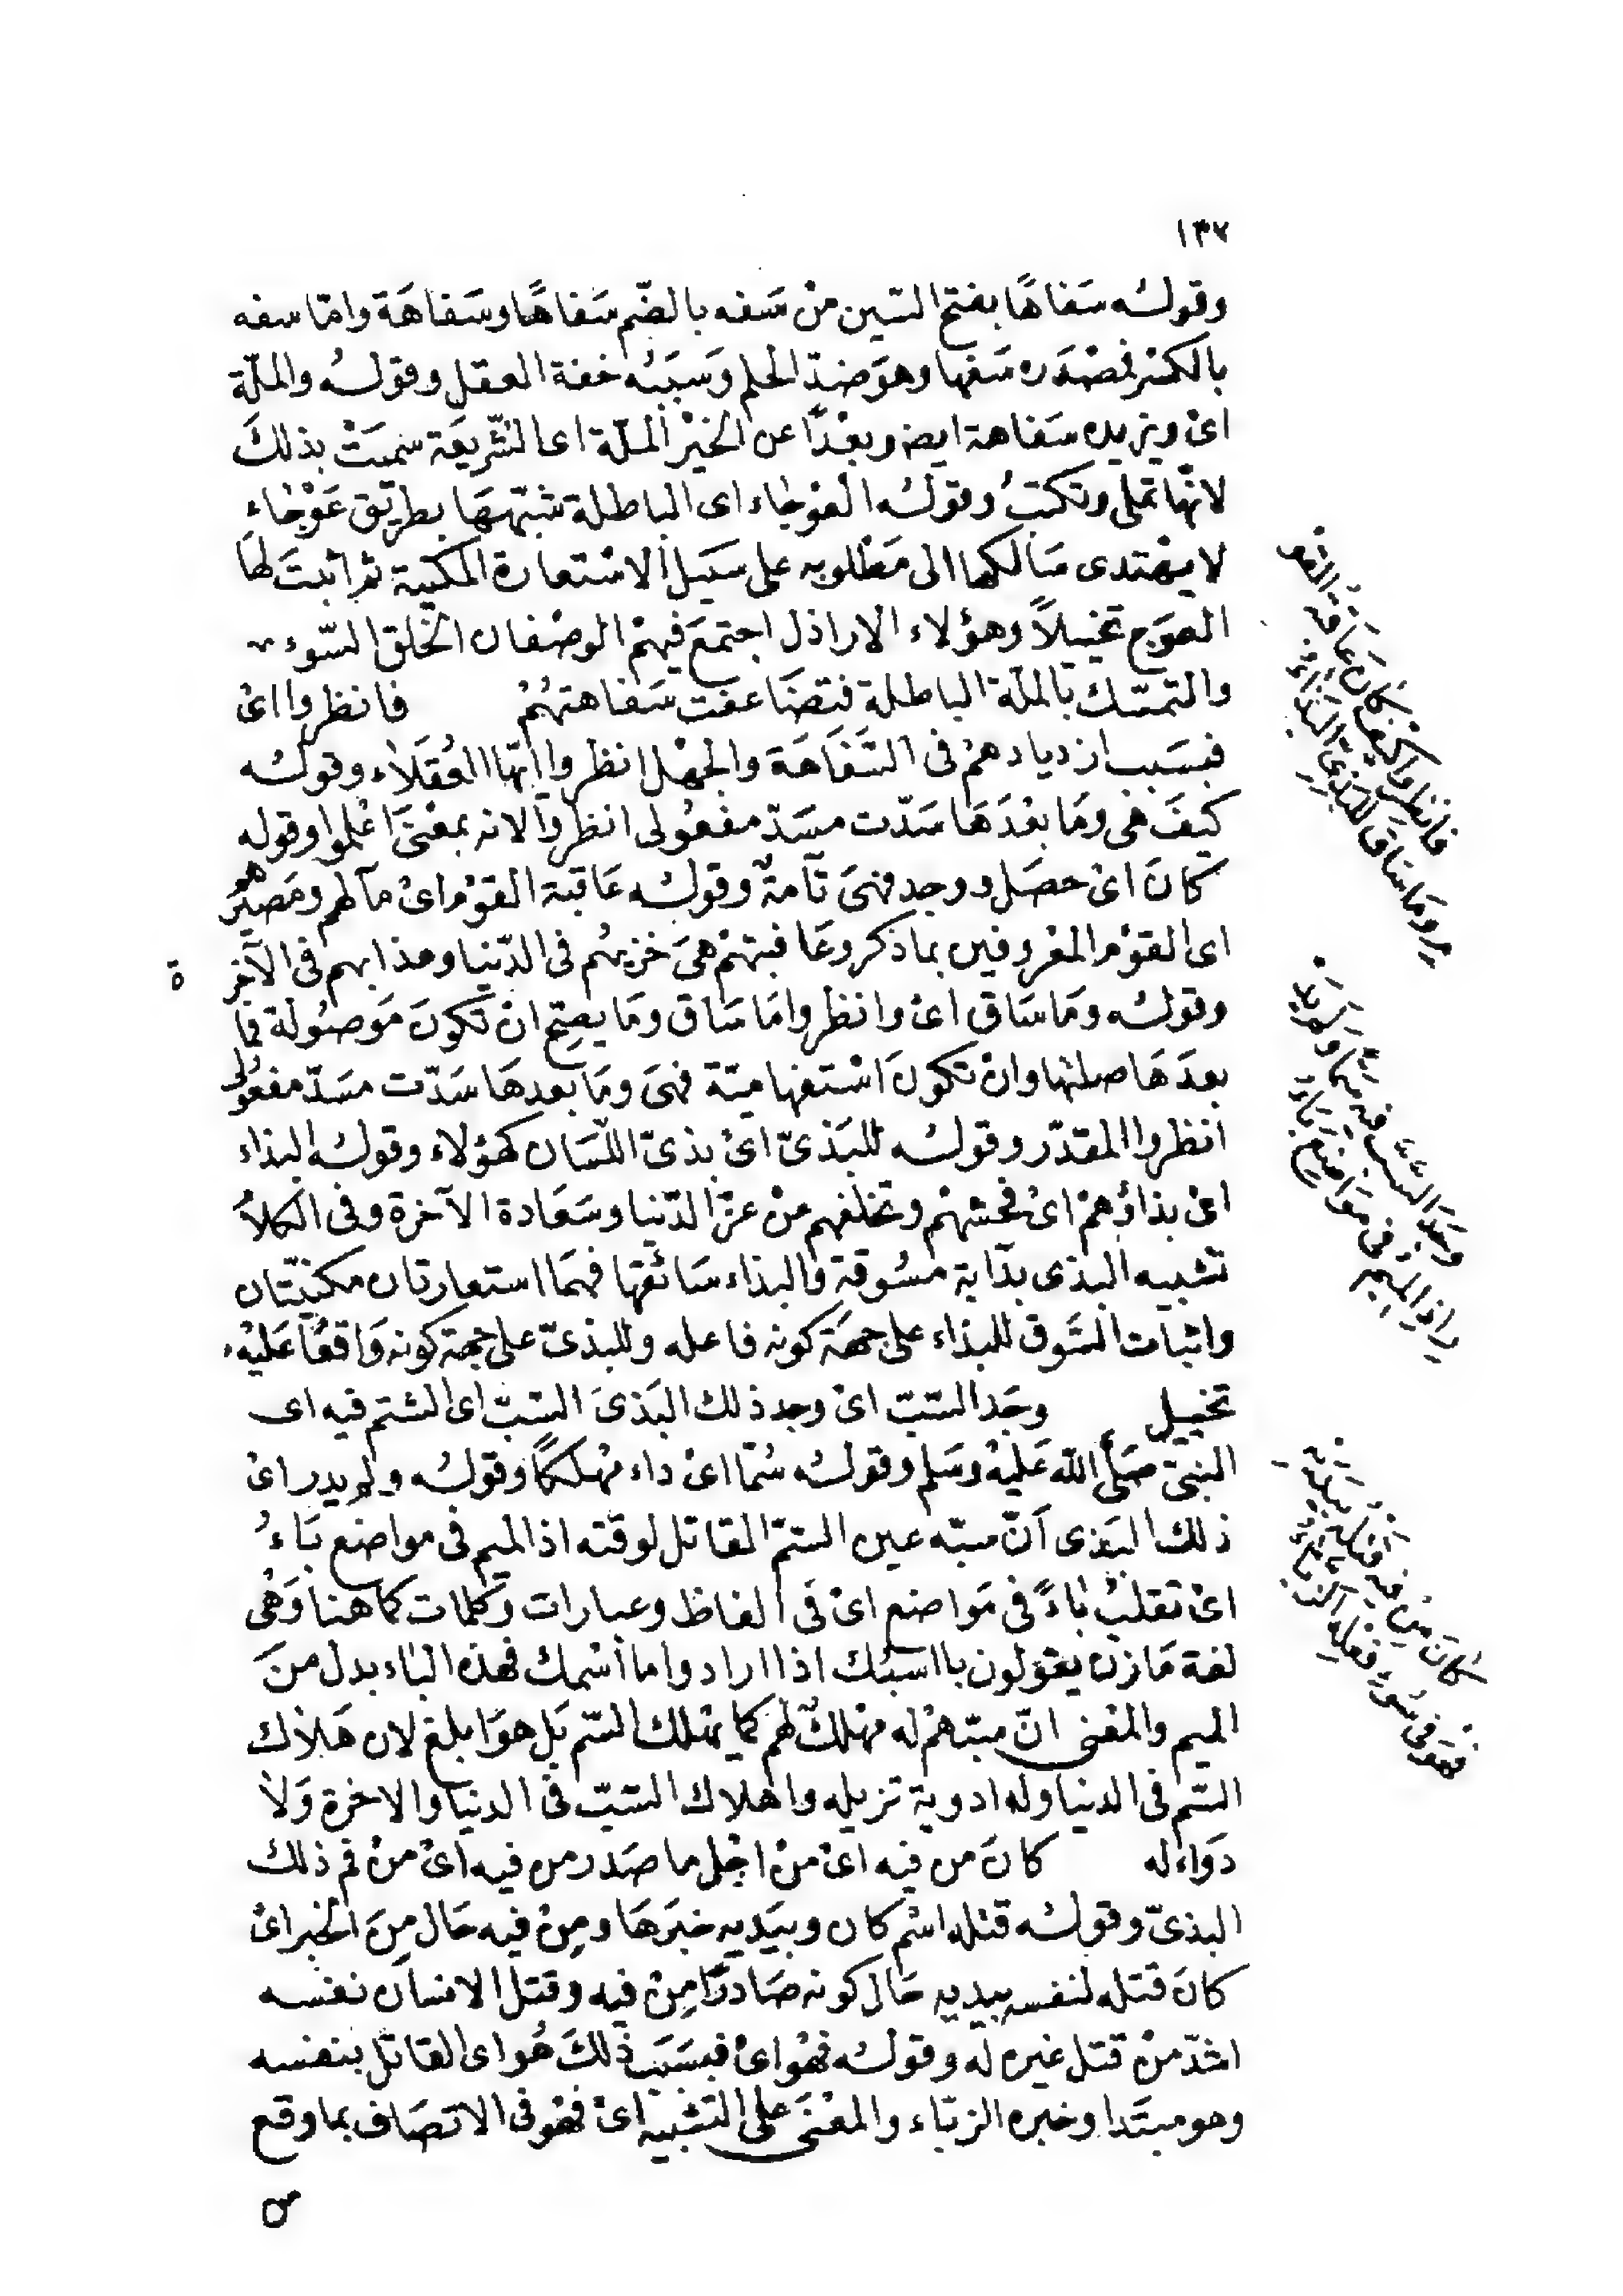 ١٣٧
وقوله سَفاهًا بفتح السّين منْ سَفه بالضّم سَفاهًا وسَفاهَة وامّا سفه
بالكسْر فمصْدَره سَفها وهوَ ضدّ الحلم وَسَبَبُه خفة العقل وقولهُ والملّة
اىْ ويزيده سَفاهة ايضا وبعْدًا عن الخيْر الملّة اى الشّريعَة سميَتْ بذلكَ
لانّها تملى وتكتبُ وقولهُ العَوْجاء اى الباطلة شبّههَا بطريق عَوْجاء
لا يهْتدى سَالكها الى مَطلوبه على سَبيل الاسْتعارة المكنية ثم اثبتَ لهَا
العوَج تخييلاً وهؤلاء الاراذل اجتمعَ فيهمْ الوصْفان الخلق السّوء
والتمسّك بالملّة الباطلة فتضَاعفت سَفاهتهُمْ فانظروا اىْ
فبسَبب ازديادهمْ فى السَّفَاهَة والجهْل انظروا ايّها العُقَلاَء وقولهُ
كيْفَ هى ومَا بعْدَهَا سَدّت مسَدّ مفعُولى انظروا لانه بمعْنىَ اعْلموا وقوله
كانَ اىْ حصَل ووجد فهىَ تآمةٌ وقوله عَاقبة القوْم اىْ مآلهم ومَصيْرهم
اى القوْم المعْروفين بما ذكر وعَاقبتهمْ هىَ خزيهُم فى الدّنيا وعذابهم فى الآخرة
وقوله ومَا سَاق اىْ وانظروا مَا سَاق ومَا يصحّ انْ تكونَ مَوصُولة فما
بعدَهَا صلتها وانْ تكونَ اسْتفهاميّة فهىَ ومَا بعدهَا سَدّت مسَدّ مفعُولى
انظروا المقدّر وقولهُ للبَذىّ اىْ بذىّ اللّسَان كهؤلاء وقوله البذاء
اىْ بذاؤهمْ اىْ فحْشهمْ وتخلفهم منْ عزّ الدّنيا وسَعَادة الآخرة وفى الكلاَم
تشبيه البذى بدَابة مسُوقة والبذاء سَائقها فهمَا استعارتان مكنيّتان
واثبات السَّوق للبذاء على جهَة كونه فاعله وللبذىّ على جهة كونه وَاقعًا عَليْه
تخييل وجَد السّبّ اىْ وجد ذلك البَذىَ السّبّ اى الشتم فيه اى
النبىّ صَلَّى اللّه عَليْه وسَلم وقولهُ سُمّا اىْ داء مهْلككًا وقولهُ ولم يدر اىْ
ذلك البَذى اَنّ سبّه عين السّمّ القاتل لوقته اذ الميم فى مواضع بَاءُ
اىْ تقلبُ باءً فى مَواضع اىْ فى الفاظ وعبارات وكلمات كما هنا وَهْى
لغة مَازن يقوُلون بااسبُك اذا ارادوا ما اسْمك فهذه الباء بدل منَ
الميم والمعْنى انّ سبّهمْ له مهْلكٌ لهم كمَا يهْلك السّم بَل هوَ ابلغ لان هَلاَك
السّم فى الدنيا وله ادوية تزيله واهلاك السّبّ فى الدنيا والاخرة وَلاَ
دَواء له كانَ من فيه اىْ منْ اجْل ما صَدر من فيه اىْ منْ فم ذلك
البذىّ وقولهُ قتله اسْم كان وبيَديه خبرَهَا ومِنْ فيه حَال مِنَ الخبر اىْ
كانَ قتله لنفسه بيديه حَال كونه صَادرًا مِنْ فيه وقتل الانسَان نفسه
اشدّ منْ قتل غيره له وقولهُ فهْو اىْ فبسَبَب ذلكَ هُو اى القاتل بنفسه
وهو مبتَدا وخبره الزبّاء والمعْنىَ على التشبيه اىْ فهْو فى الاتصَاف بما وقع
فانظروا كيْفَ كَانَ عَاقبَةُ القَوْ
مِ وَمَا سَاقَ لِلبَذِىّ البَذَاءُ
وَجَدَ السَّبَّ فيهِ سُمًّا وَلمْ يَدْ
رِ اِذِ المِيمُ فى مَوَاضِعَ بَاءُ
كَانَ مِنْ فيهِ قَتْلُهُ بيَدَيْهِ
فَهْوَ فى سُوءِ فِعْلِهِ الزَّبَّاءُ